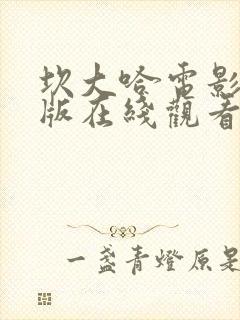 坎大哈電影
版在綫觀看
一盞青燈原是